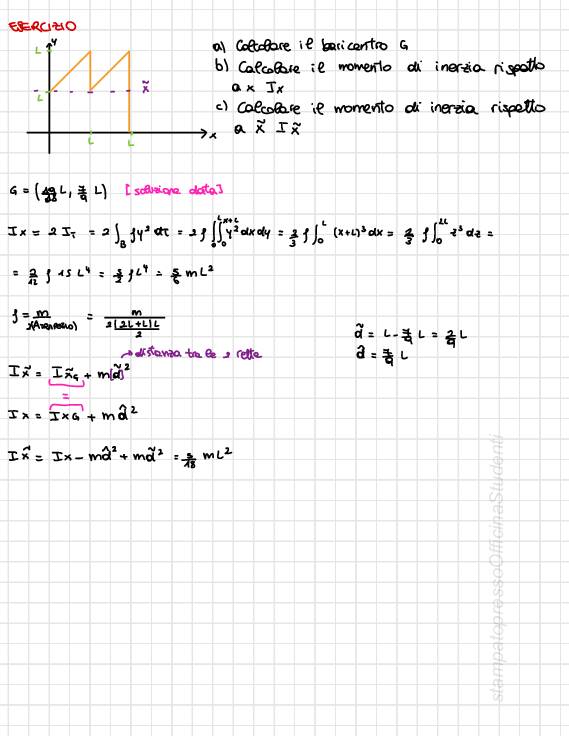 ESERCIZIO
y
L
L
x̃
x
L
L
a) Calcolare il baricentro G
b) Calcolare il momento di inerzia rispetto
a x Ix
c) Calcolare il momento di inerzia rispetto
a x̃ Ix̃
G = (19/18 L, 7/9 L) [soluzione data]
Ix = 2 I_T = 2 ∫_B ρy² dτ = 2ρ ∫_0^L ∫_0^{x+L} y² dx dy = 2/3 ρ ∫_0^L (x+L)³ dx = 2/3 ρ ∫_0^{2L} z³ dz =
= 2/12 ρ 15 L⁴ = 5/2 ρL⁴ = 5/6 mL²
ρ = m / = m / 2(2L+L)L/2
d̃ = L - 7/9 L = 2/9 L
d̂ = 7/9 L
distanza tra le 2 rette
Ix̃ = Ix̃_G + m(d̃)²
=
Ix = Ix_G + m d̂²
Ix̃ = Ix - md̂² + md̃² = 5/18 mL²
stampatopressoOfficinaStudenti